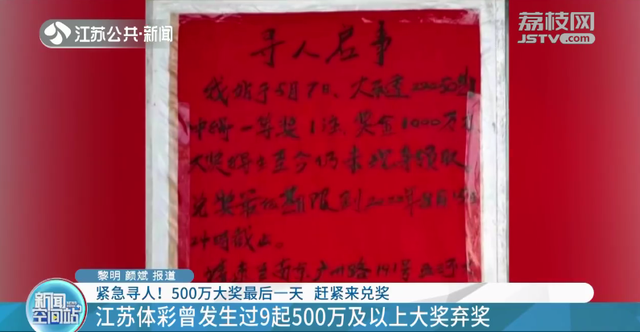 江苏公共·新闻
荔枝网
JSTV.com
寻人启事
我站于5月7日
中得一等奖1注 奖金1000万
大奖得主至今仍未现身领取
兑奖最后期限到2022年
时截止
黎明 颜斌 报道
紧急寻人！500万大奖最后一天 赶紧来兑奖
新闻空间站
江苏体彩曾发生过9起500万及以上大奖弃奖